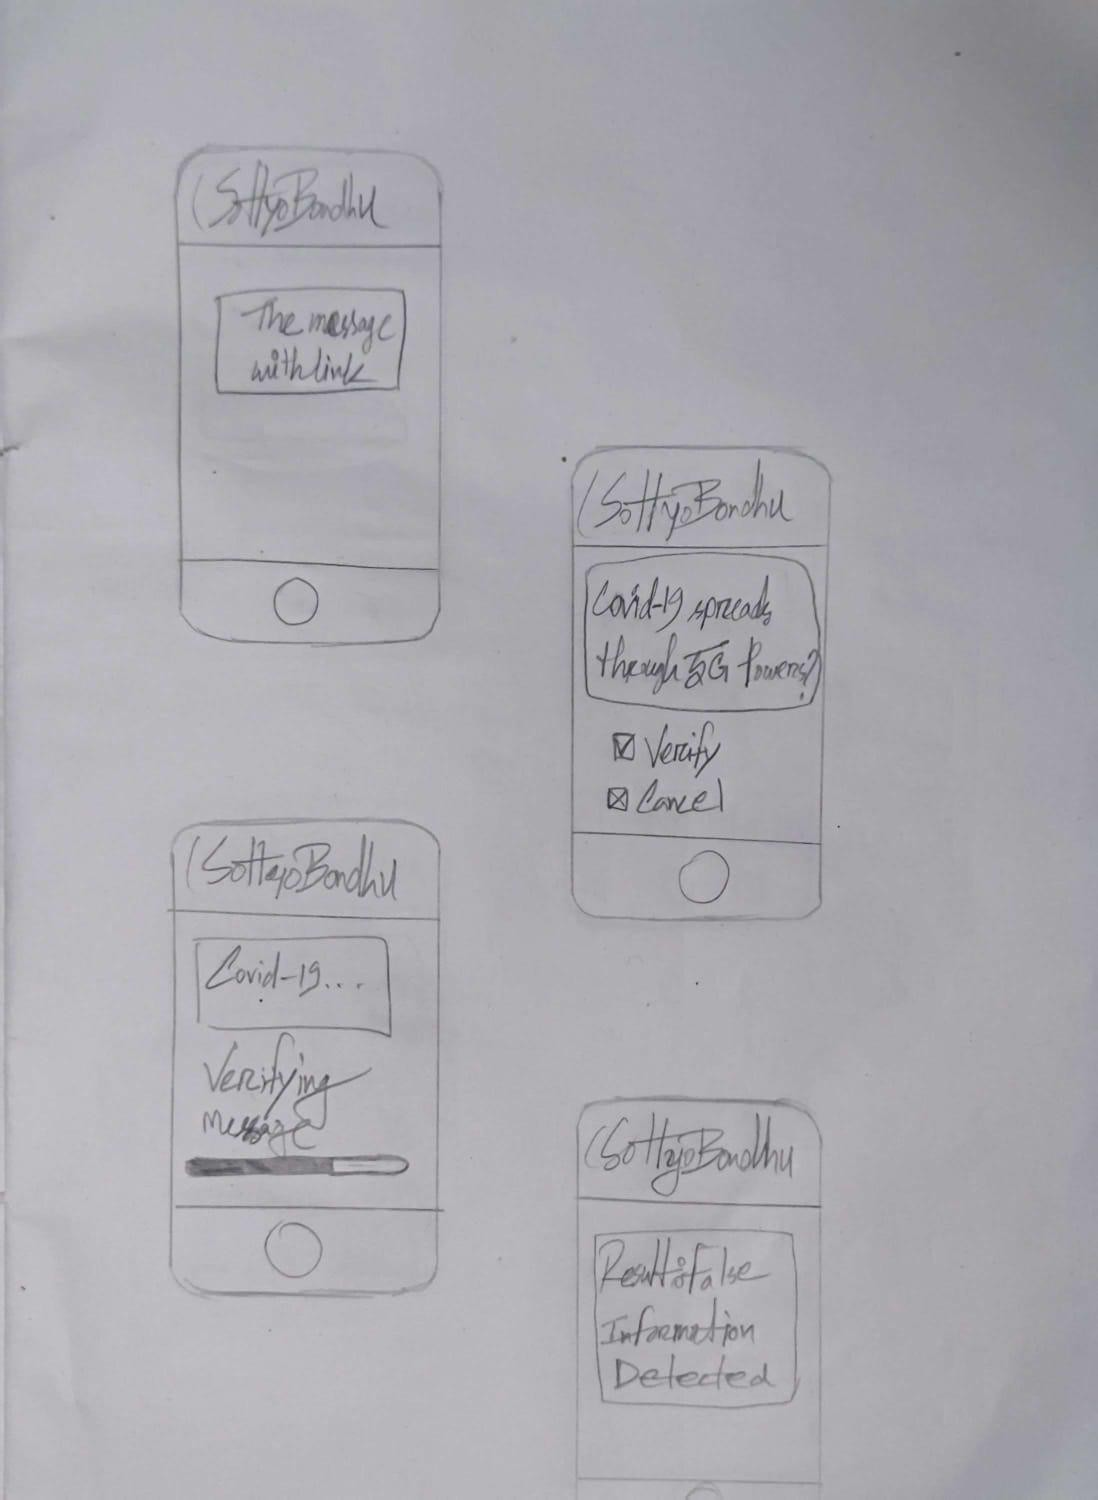 (SottyoBondhu
The message
with link
(SottyoBondhu
Covid-19 spreads
through 5G Powers?
Verify
Cancel
(SottyoBondhu
Covid-19...
Verifying
message
(SottyoBondhu
Result: False
Information
Detected